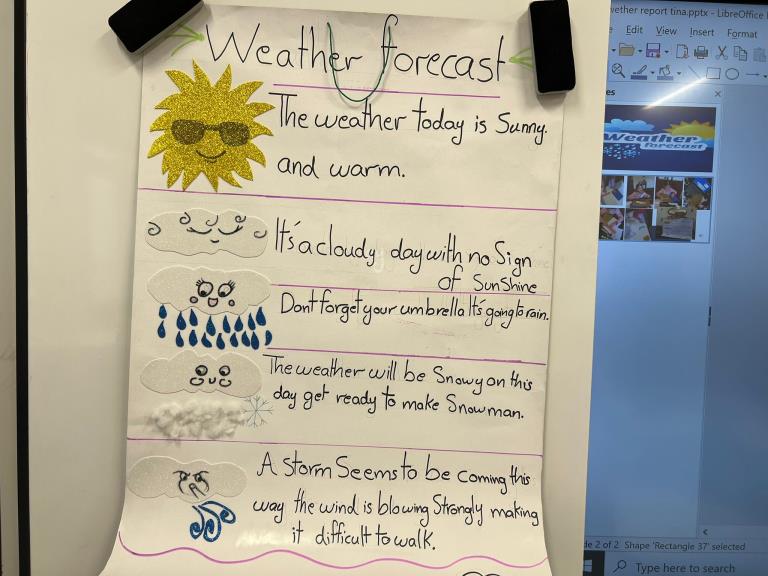 Weather forecast
The weather today is Sunny.
and warm.
It's a cloudy day with no Sign
of SunShine
Dont forget your umbrella It's going to rain.
The weather will be Snowy on this
day get ready to make Snowman.
A Storm Seems to be coming this
way the wind is blowing Strongly making
it difficult to walk.
wether report tina.pptx - LibreOffice
Edit View Insert Format
Weather
forecast
de 2 of 2 Shape 'Rectangle 37' selected
Type here to search